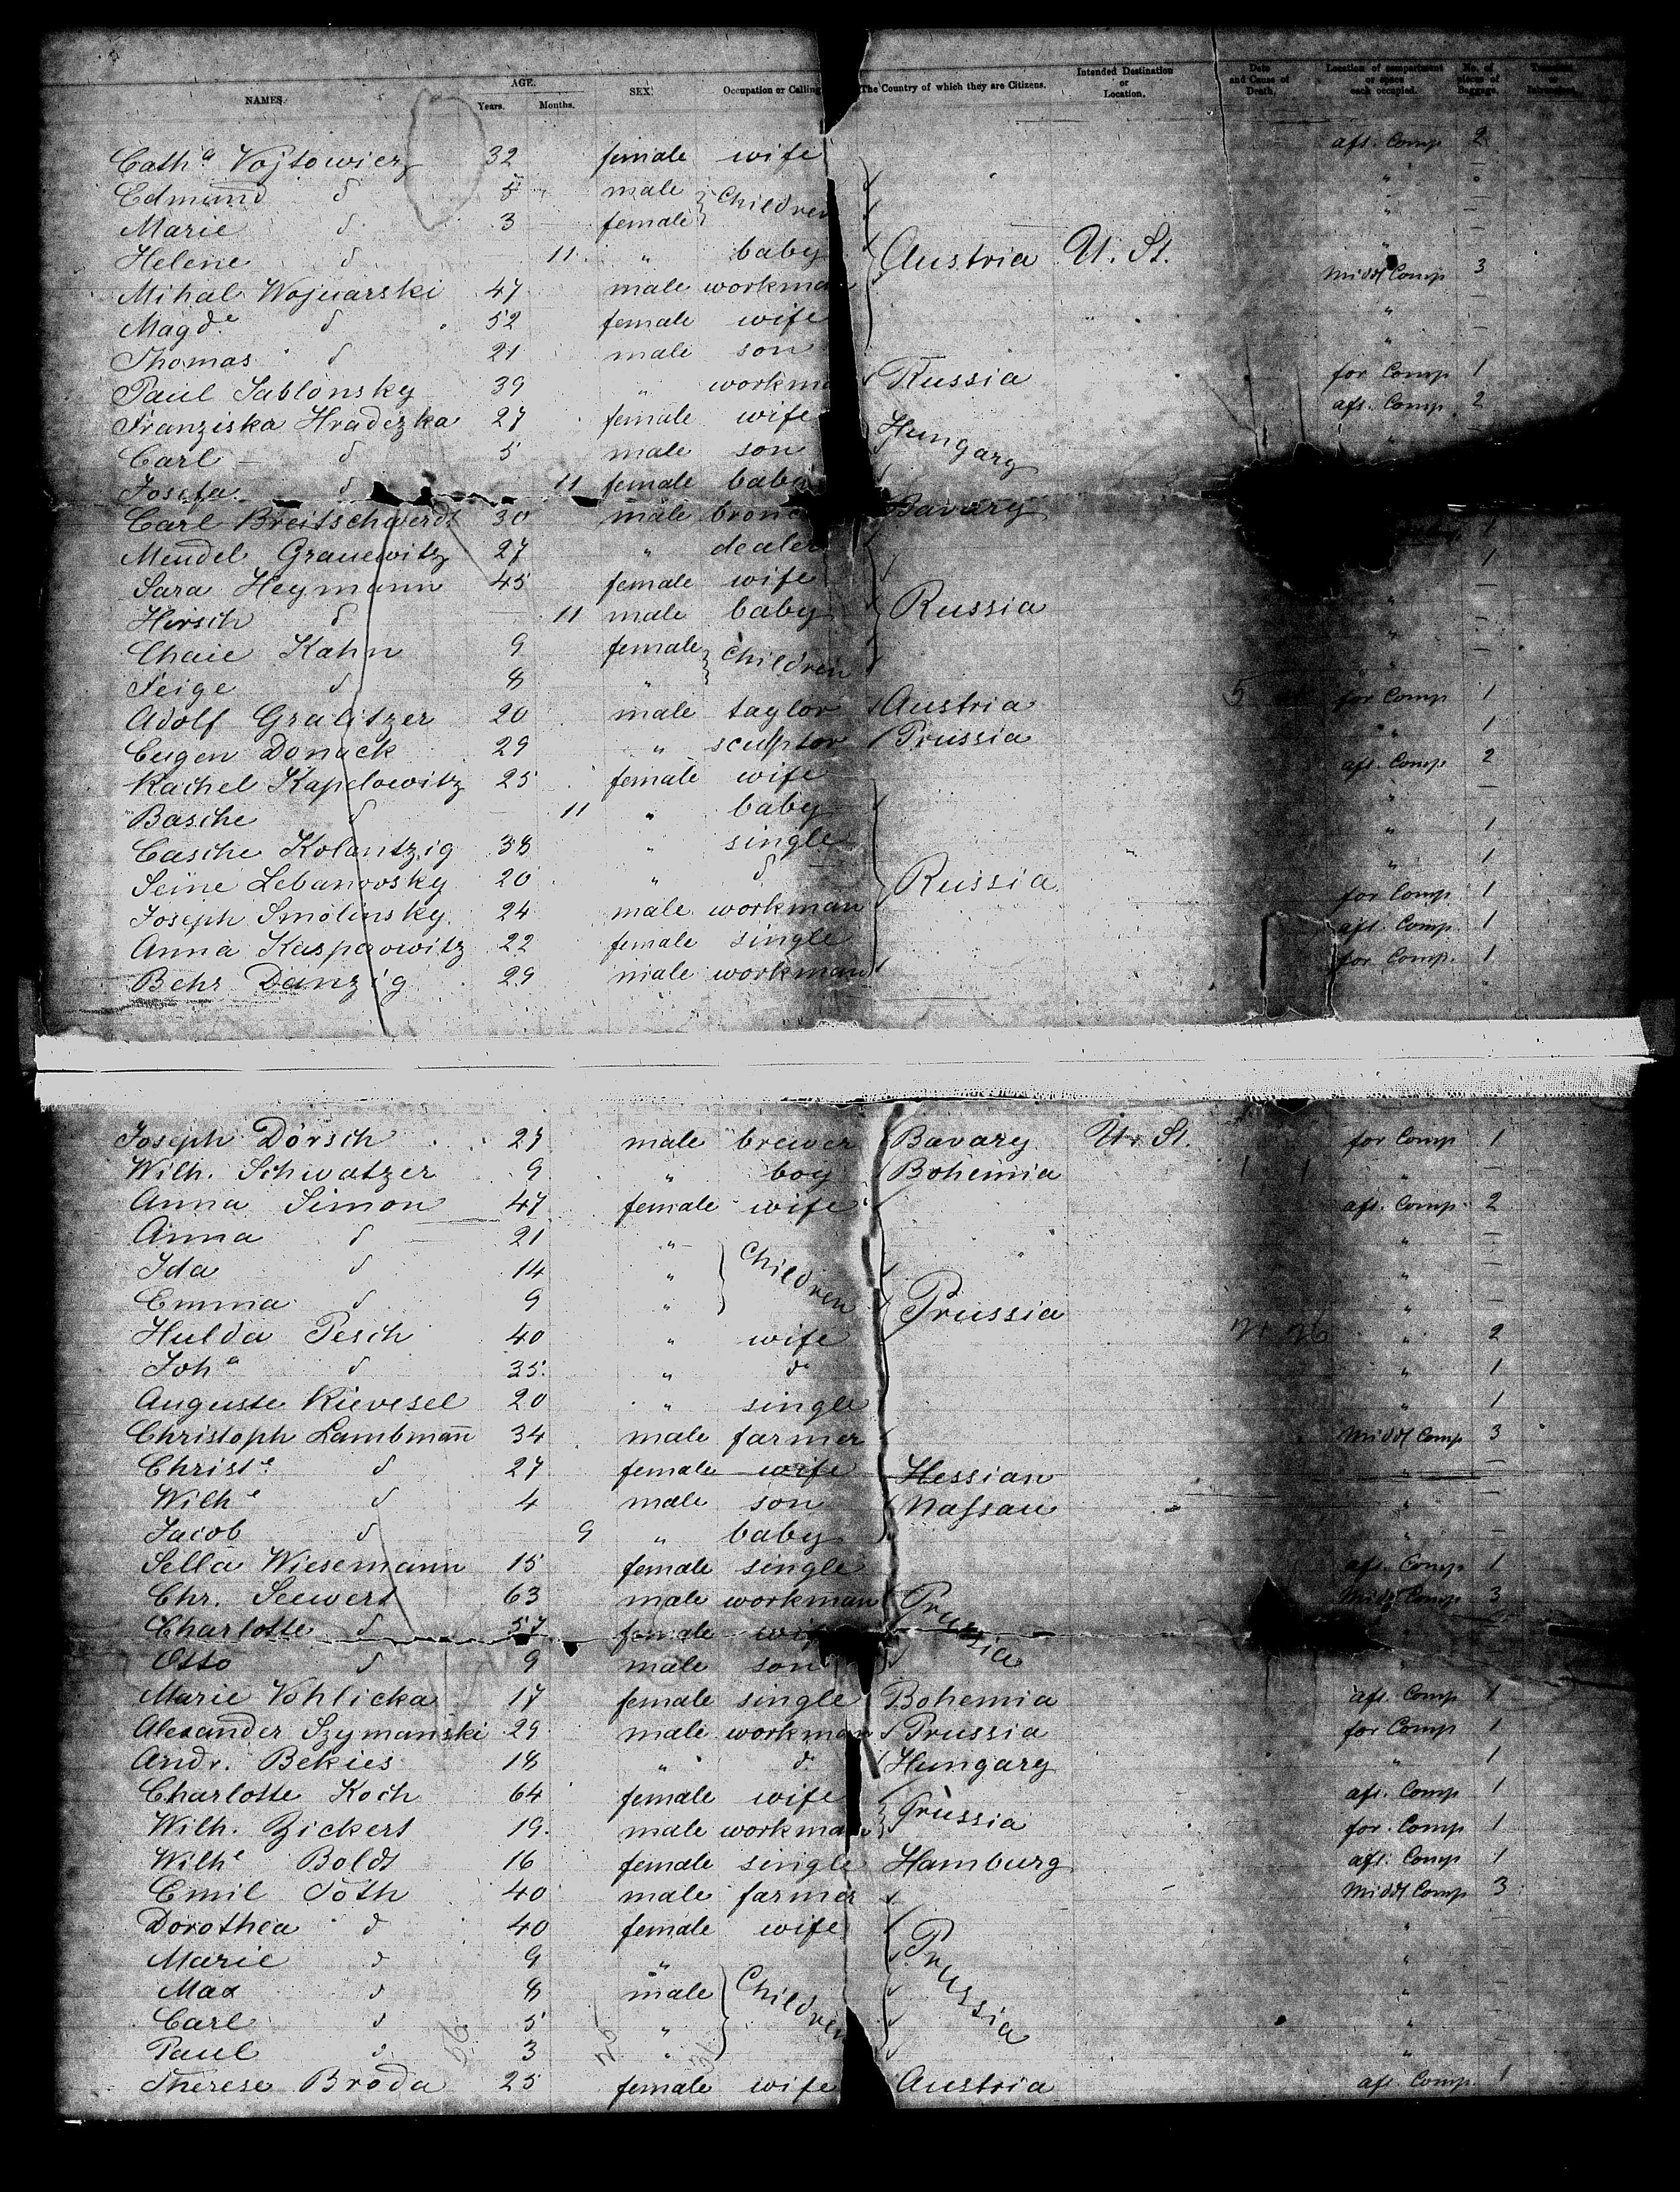 NAMES. AGE. Years. Months. SEX. Occupation or Calling The Country of which they are Citizens. Intended Destination or Location. Date and Cause of Death. Location of compartment or space each occupied. No. of pieces of Baggage.
Cath.a Vojtowicz 32 female wife aft. Comp 2
Edmund d 5 male Children " —
Marie d 3 female " —
Helene d 11 " baby Austria U. St. " —
Mihal Wojnarski 47 male workman Middl Comp 3
Magd.e d 52 female wife " —
Thomas d 21 male son " —
Paul Jablonsky 39 " workma Russia for Comp 1
Franziska Hradezka 27 female wife Hungary aft. Comp 2
Carl d 5 male son " —
Josefa d 11 female baby
Carl Breitschwerdt 30 male Bavary 1
Mendel Granewitz 27 " dealer 1
Sara Heymann 45 female wife —
Hirsch d 11 male baby Russia " —
Chaie Kahn 9 female Children " —
Feige d 8 " " —
Adolf Gralitzer 20 male taylor Austria for Comp 1
Eugen Donack 29 " sculptor Prussia " 1
Rachel Kapelowitz 25 female wife aft. Comp 2
Basche d 11 " baby " —
Casche Kolantzig 38 " single " 1
Seine Lebanovsky 20 " d Russia " 1
Joseph Smolinsky 24 male workman for Comp 1
Anna Kasparowitz 22 female single aft. Comp 1
Behr Danzig 29 male workman for Comp. 1
Joseph Dörsch 27 male brewer Bavary U. St. for Comp 1
Wilh. Schwatzer 9 " boy Bohemia " —
Anna Simon 47 female wife aft. Comp 2
Anna d 21 " Children " —
Ida d 14 " " —
Emma d 9 " Prussia " —
Hulda Pesch 40 " wife " 2
Joh.a d 35 " d " 1
Auguste Rievesel 20 " single " 1
Christoph Lambman̄ 34 male farmer Middl Comp 3
Christ.e d 27 female wife Hessian " —
Wilh.e d 4 male son Nassau " —
Jacob d 9 " baby " —
Sella Wiesemann 15 female single aft. Comp 1
Chr. Seewert 63 male workman Prussia Middl Comp 3
Charlotte d 57 female wife —
Otto d 9 male son " —
Marie Vohlicka 17 female single Bohemia aft. Comp 1
Alexander Szymanski 29 male workman Prussia for Comp 1
Andr. Bekies 18 " d. Hungary " 1
Charlotte Koch 64 female wife Prussia aft. Comp 1
Wilh. Zickert 19. male workman for. Comp 1
Wilh.e Boldt 16 female single Hamburg aft. Comp 1
Emil Toth 40 male farmer Middl Comp 3
Dorothea d 40 female wife Prussia " —
Marie d 9 " Children " —
Max d 8 male " —
Carl d 5 " " —
Paul d 3 " " —
Therese Broda 25 female wife Austria aft. Comp. 1